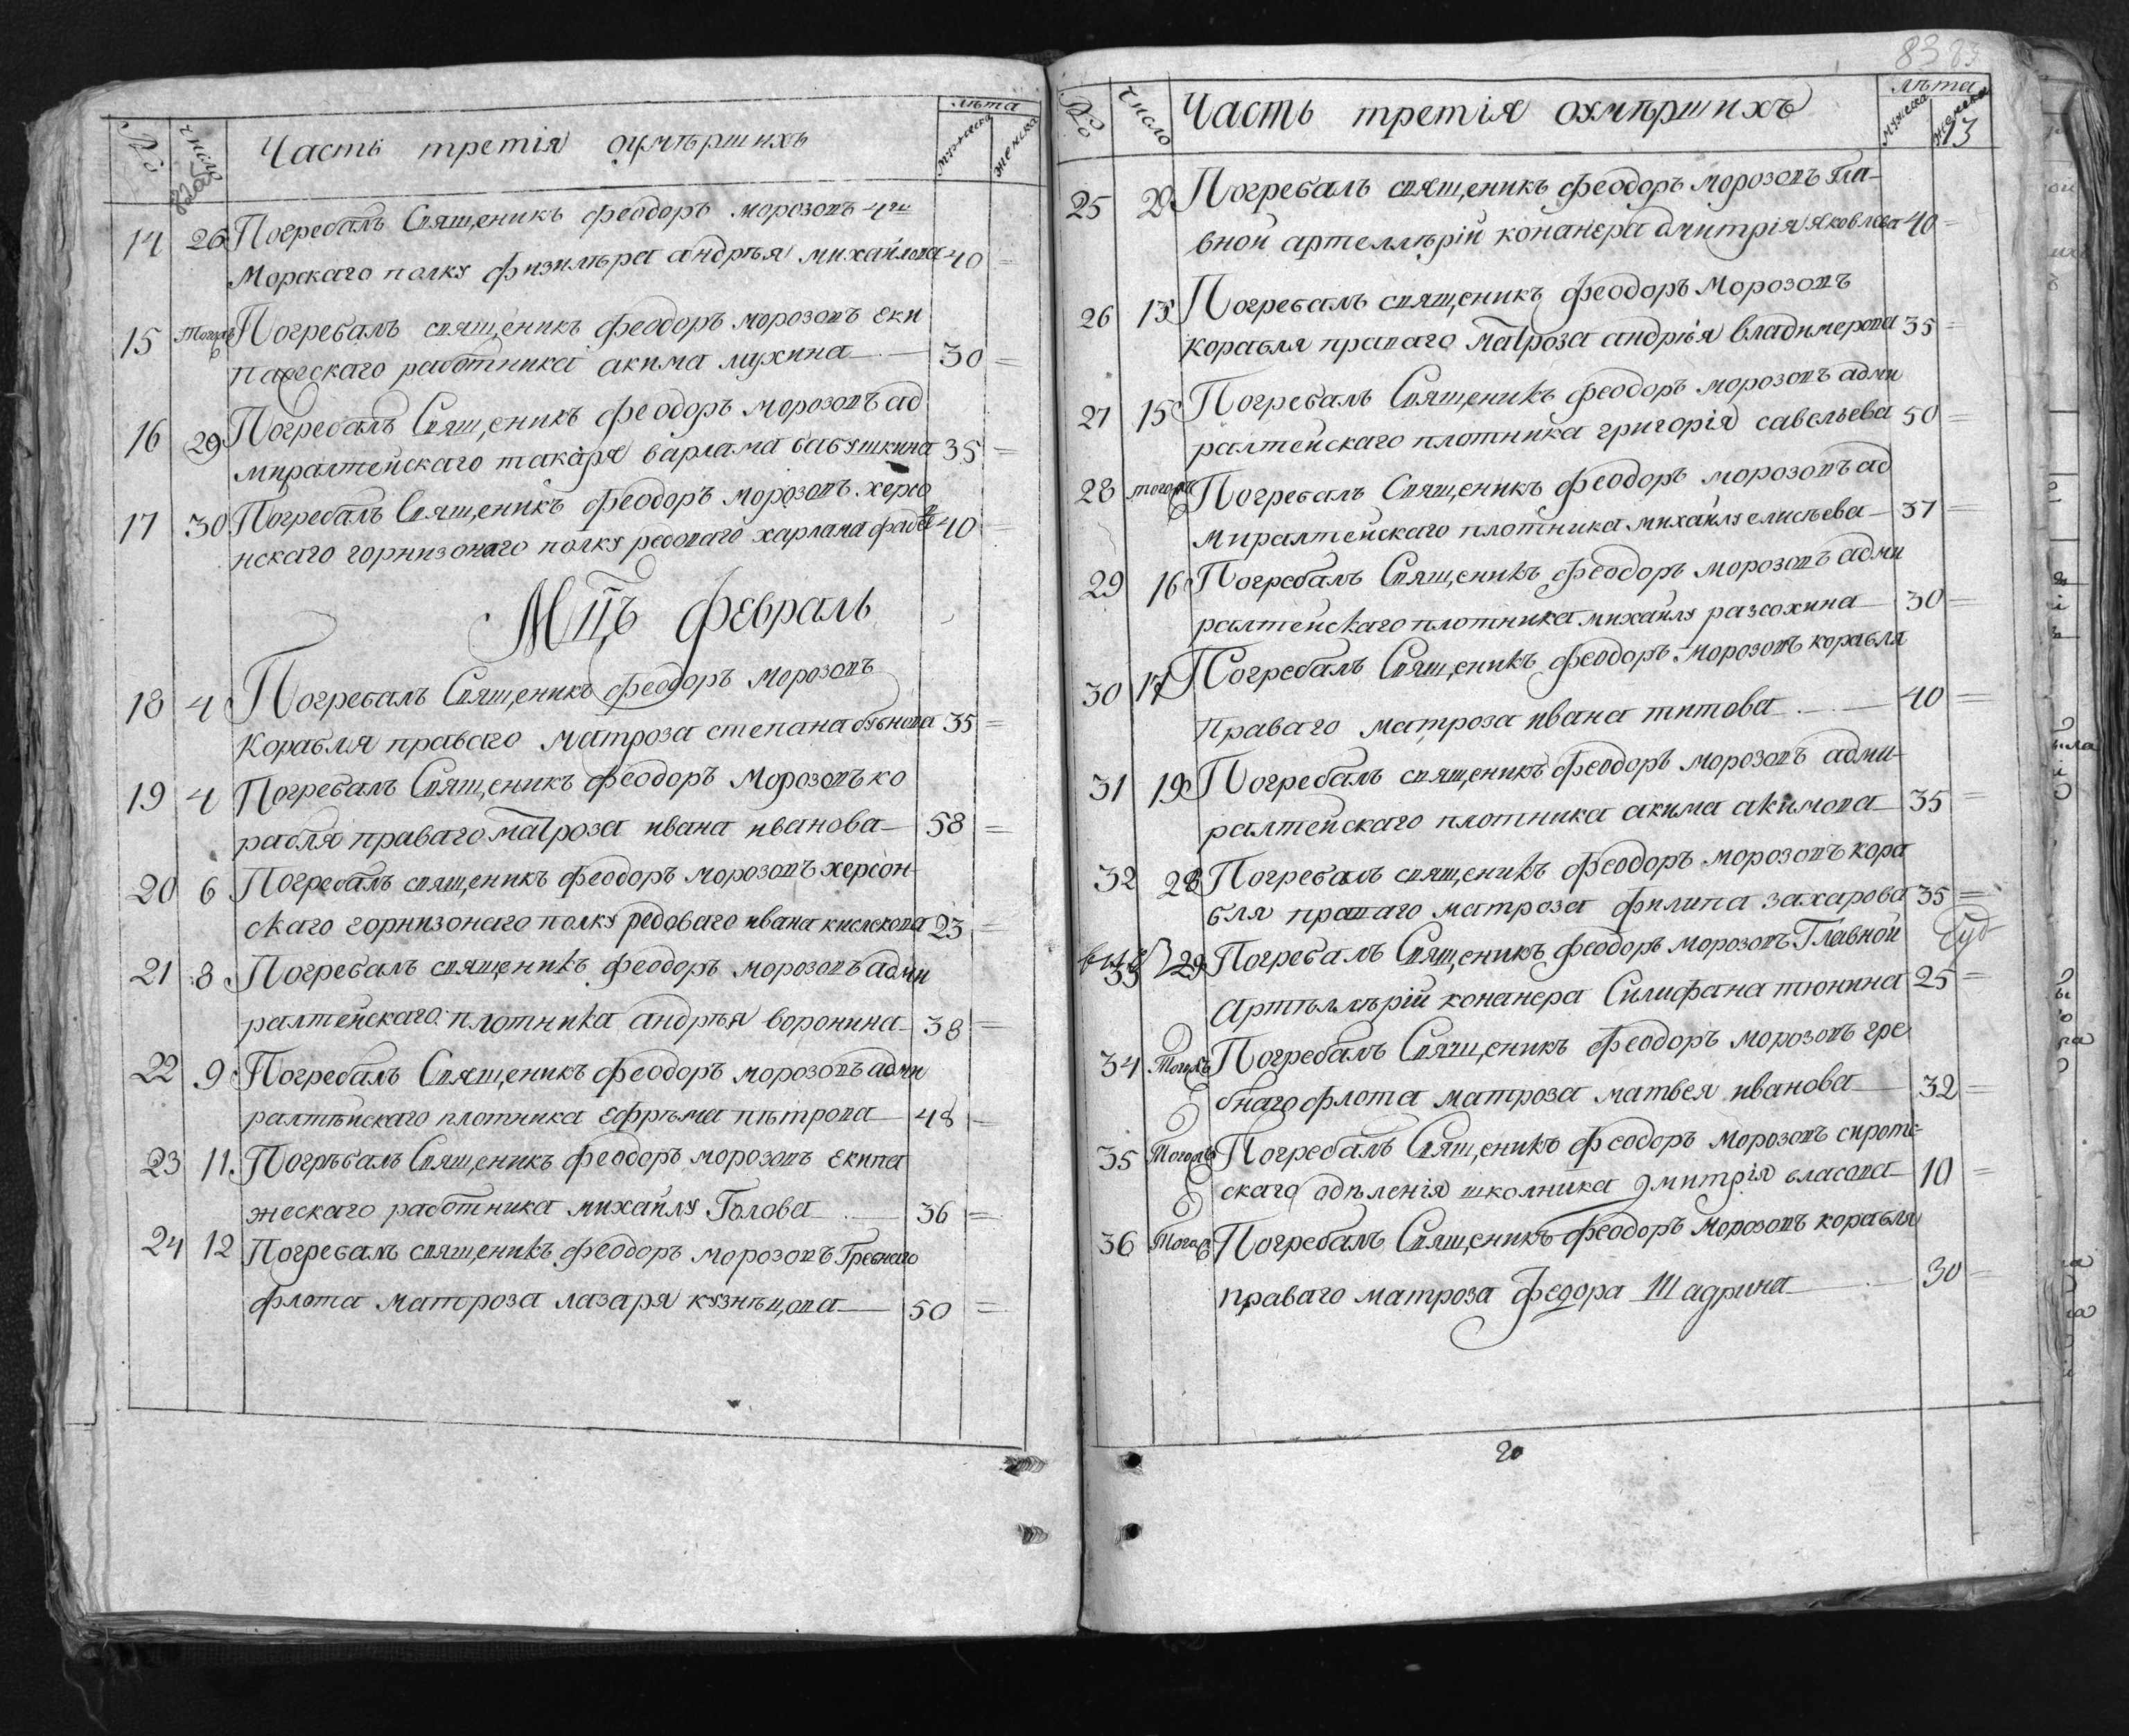 №
число
Часть третія оумѣршихъ
лѣта
мужеска
женска
14 26 Погребалъ Священикъ феодоръ морозовъ 4го
Морскаго полку физилѣра андрѣя михайлова 40 =
15 Тогожъ Погребалъ священикъ феодоръ морозовъ еки
пажескаго работника акима мухина 30 =
16 29 Погребалъ Священикъ феодоръ морозовъ ад
миралтейскаго такаря варлама бабушкина 35 =
17 30 Погребалъ Священикъ феодоръ морозовъ херсо
нскаго горнизонаго полку редоваго харлама 40 =
Мцъ февраль
18 4 Погребалъ Священикъ феодоръ морозовъ
Корабля праваго матроза степана 35 =
19 4 Погребалъ Священикъ феодоръ Морозовъ ко
рабля праваго матроза ивана иванова 58 =
20 6 Погребалъ священикъ феодоръ морозовъ херсон-
скаго горнизонаго полку редоваго ивана 23 =
21 8 Погребалъ священикъ феодоръ морозовъ адми
ралтейскаго плотника андрѣя воронина 38 =
22 9 Погребалъ Священикъ феодоръ морозовъ адми
ралтѣйскаго плотника ефрѣма пѣтрова 48 =
23 11 Погрѣбалъ Священикъ феодоръ морозовъ екипа
жескаго работника михайлу Голова 36 =
24 12 Погребалъ священикъ феодоръ морозовъ Гребнаго
флота матроза лазаря кузнѣцова 50 =
83 83
№
число
Часть третія оумѣршихъ
лѣта
мужеска
женска
13
25 Погребалъ священикъ феодоръ морозовъ гла-
вной артеллѣрій конанера дмитрія яковлева 40 =
26 13 Погребалъ священикъ феодоръ Морозовъ
корабля праваго матроза андрѣя владимерова 35 =
27 15 Погребалъ Священикъ феодоръ морозовъ адми
ралтейскаго плотника григорія савельева 50 =
28 тогожъ Погребалъ Священикъ феодоръ морозовъ ад
миралтейскаго плотника михайлу елисѣева 37 =
29 16 Погребалъ Священикъ феодоръ морозовъ адми
ралтейскаго плотника михайлу разсохина 30 =
30 17 Погребалъ Священикъ феодоръ морозовъ корабля
праваго матроза ивана титова 40 =
31 19 Погребалъ священикъ феодоръ морозовъ адми-
ралтейскаго плотника акима акимова 35 =
32 28 Погребалъ священикъ феодоръ морозовъ кора
бля праваго матроза филипа захарова 35 =
33 29 Погребалъ Священикъ феодоръ морозовъ Главной
Артѣллѣрій конанера Силифана тюнина 25 =
34 Тогожъ Погребалъ Священикъ феодоръ морозовъ гре
бнаго флота матроза матвея иванова 32 =
35 Тогожъ Погребалъ Священикъ феодоръ морозовъ сиротс-
скаго одѣленія школника дмитрія власова 10 =
36 Тогожъ Погребалъ Священикъ феодоръ морозовъ корабля
праваго матроза федора Шадрина 30 =